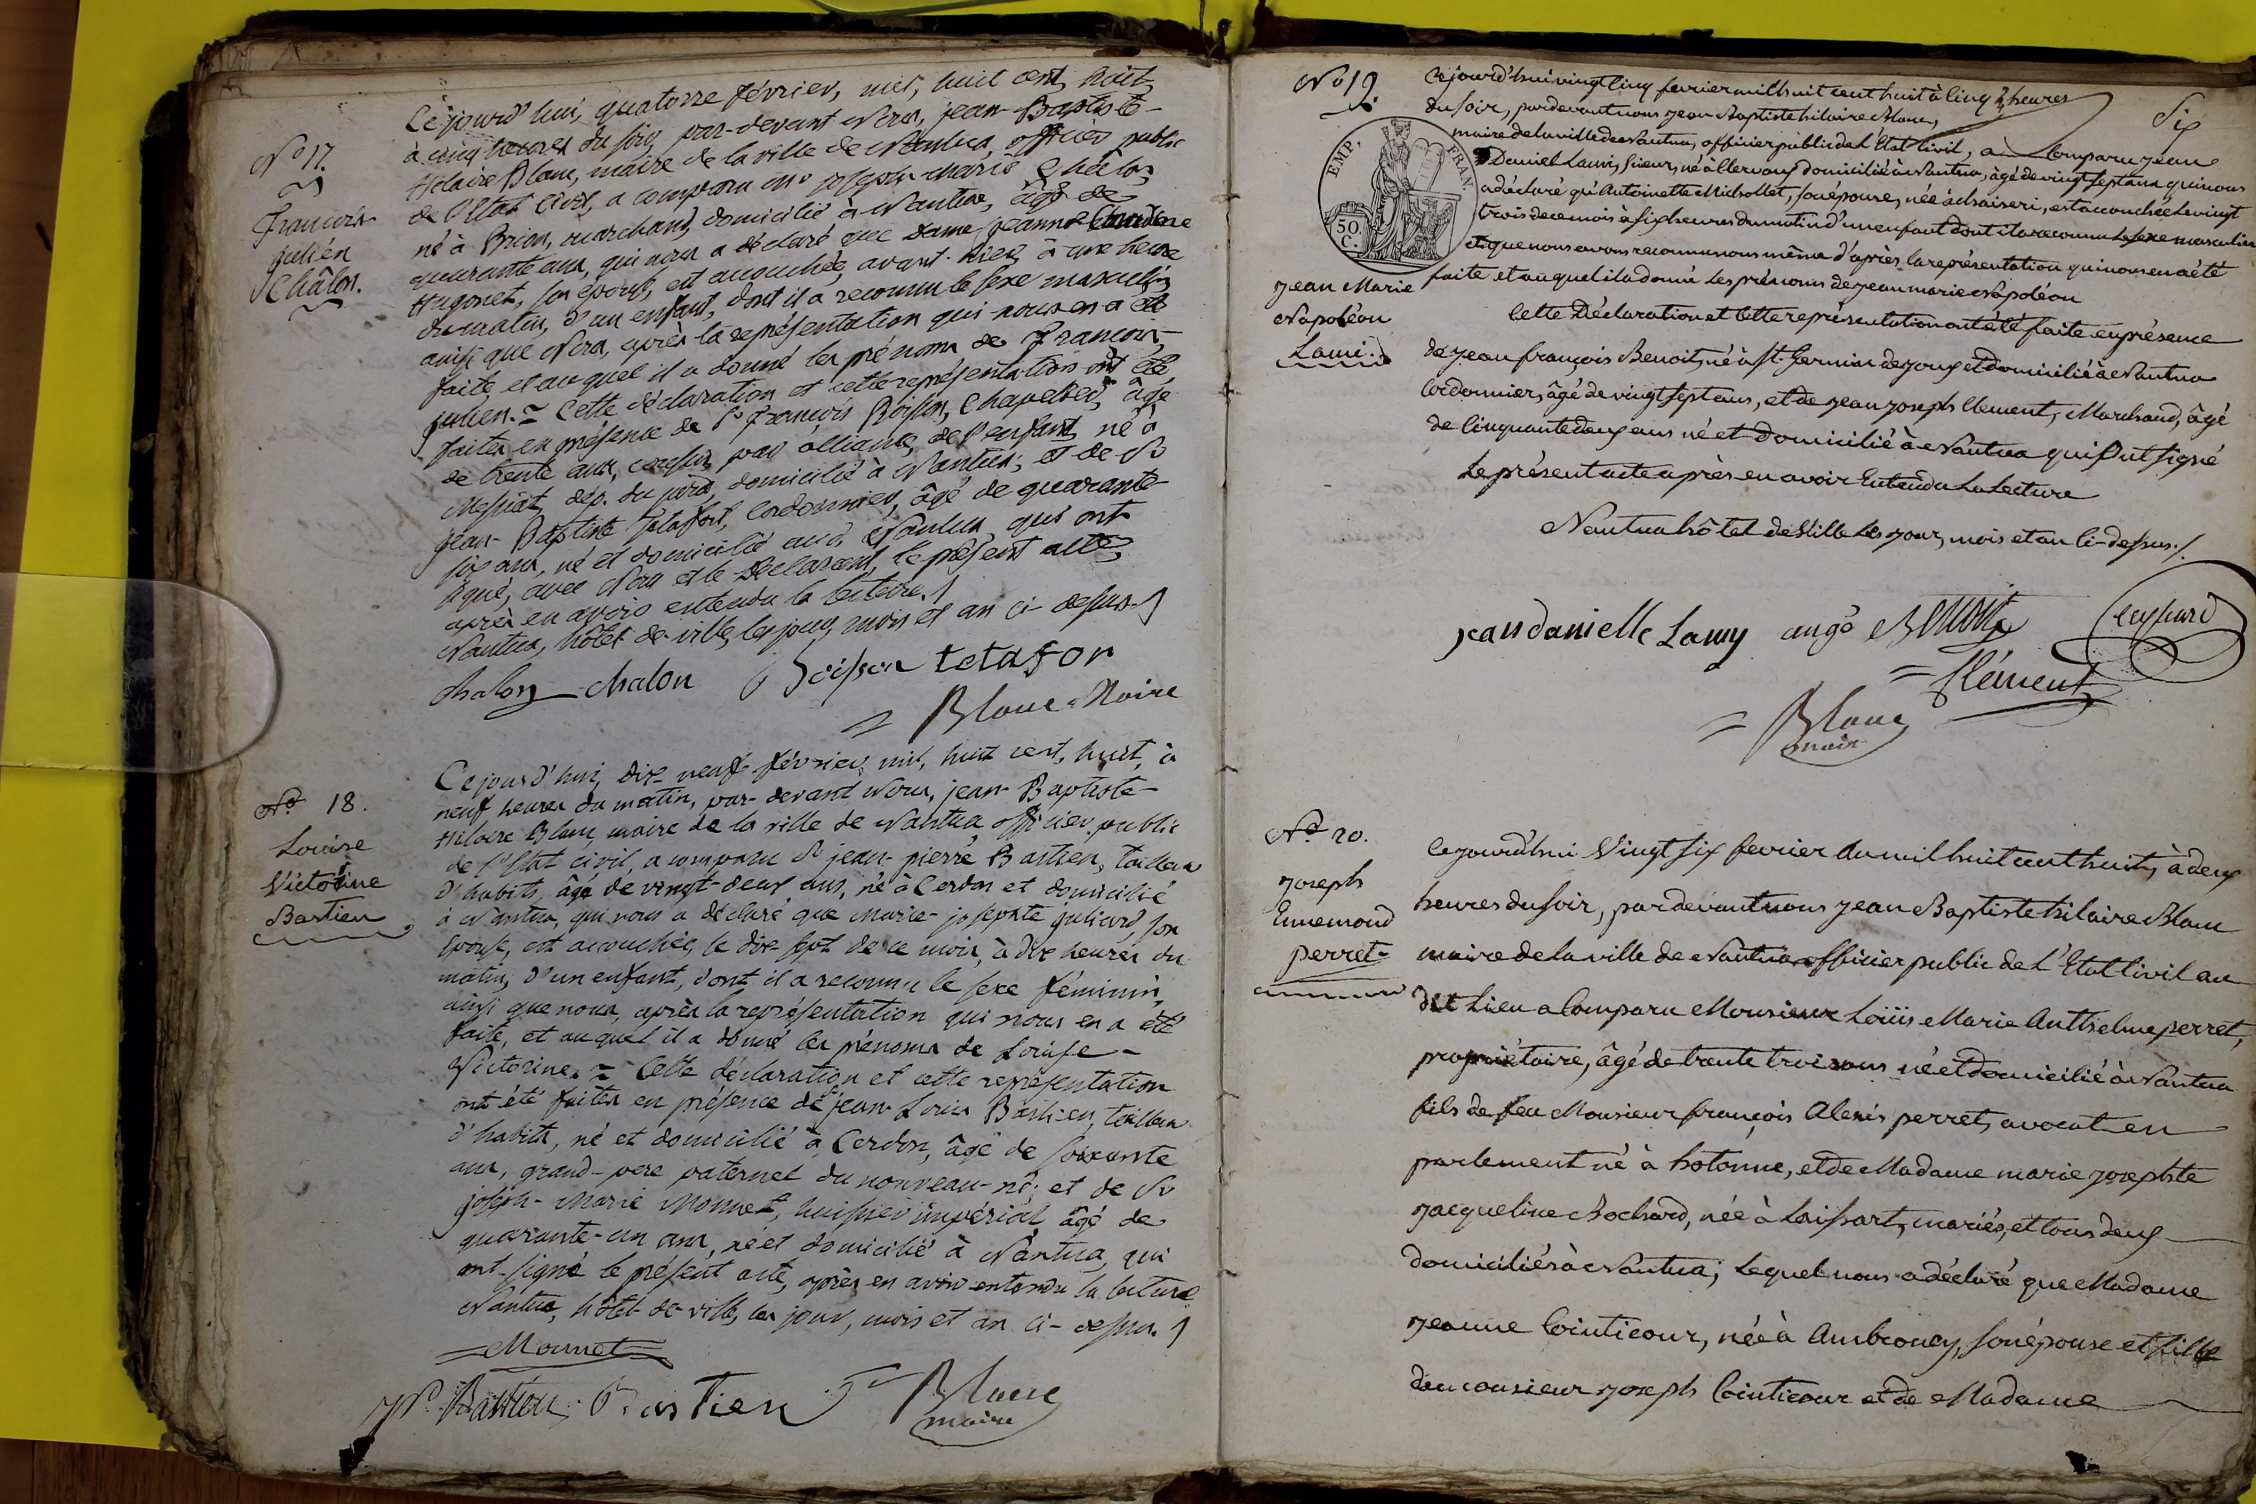 No 17.
François
julien
Châlon.
Cejourd'hui, quatorze février, mil, huit cent, huit,
à cinq heures du soir, par-devant Nous, jean-Baptiste-
Hilaire Blanc, maire de la ville de Nantua, officier public
de l'Etat Civil, a comparu joseph-marie Châlon,
né à Brion, marchand, domicilié à Nantua, âgé de
quarante ans, qui nous a déclaré que Dame jeanne Claudine
Hugonet, son épouse, est accouchée, avant-hier, à une heure
du matin, d'un enfant, dont il a reconnu le sexe masculin,
ainsi que Nous, après la représentation qui nous en a été
faite, et auquel il a donné les prénoms de François,
julien. = Cette déclaration et cette représentation ont été
faites en présence de Sr François Boisson, Chapelier, âgé
de trente ans, cousin par alliance de l'enfant, né à
dép. du jura, domicilié à Nantua; et de Sr
jean-Baptiste Tétafort, Cordonnier, âgé de quarante-
six ans, né et domicilié au à Nantua, qui ont
signé, avec Nous et le Déclarant, le présent acte,
après en avoir entendu la lecture./
Nantua, hôtel de ville, les jour, mois et an ci-dessus./
chalon chalon Boisson tetafor
= Blanc Maire
No 18.
Louise
Victorine
Bastien
Cejourd'hui, dix-neuf février, mil, huit cent, huit, à
neuf heures du matin, par-devant Nous, jean-Baptiste-
Hilaire Blanc, maire de la ville de Nantua, officier public
de l'Etat civil, a comparu Sr jean-pierre Bastien, tailleur
d'habits, âgé de vingt-deux ans, né à Cerdon et domicilié
à Nantua, qui nous a déclaré que marie-josephte juliard, son
épouse, est accouchée, le dix-sept de ce mois, à dix heures du
matin, d'un enfant, dont il a reconnu le sexe féminin,
ainsi que nous, après la représentation qui nous en a été
faite, et auquel il a donné les prénoms de Louise-
Victorine. = Cette déclaration et cette représentation
ont été faites en présence de Sr jean-Louis Bastien, tailleur
d'habits, né et domicilié à Cerdon, âgé de soixante
ans, grand-père paternel du nouveau-né; et de Sr
joseph-Marie Monnet, huissier impérial, âgé de
quarante-un ans, né et domicilié à Nantua, qui
ont signé le présent acte, après en avoir entendu la lecture
Nantua, hôtel-de-ville, les jour, mois et an ci-dessus./
Monnet
jp. Bastien Bastien Blanc
maire
No 19.
Six
EMP. FRAN.
50. C.
jean Marie
Napoléon
Lami.
Cejourd'hui vingt cinq fevrier mil huit cent huit à cinq heures
du soir, pardevant nous jean Baptiste hilaire Blanc,
maire de la ville de Nantua, officier public de l'Etat Civil, a Comparu jean
Daniel Lami, domicilié à Nantua, âgé de vingt sept ans qui nous
a déclaré qu'Antoinette Michollet, son épouse, née à est accouchée le vingt
trois de ce mois à six heures du matin d'un enfant dont il a reconnu le sexe masculin
et que nous avons reconnu nous même d'après la représentation qui nous en a été
faite et auquel il a donné les prénoms de jean marie Napoléon
Cette Déclaration et Cette représentation ont été faite en présence
de jean françois Benoit, né à St. Germain de joux et domicilié à Nantua
Cordonnier, âgé de vingt sept ans, et de jean joseph Clement, Marchand, âgé
de Cinquante deux ans né et Domicilié à Nantua qui Ont signé
Le présent acte après en avoir Entendu La Lecture
Nantua hôtel de Ville Les jour, mois et an Ci-dessus./.
jean danielle Lamy Benoit
Clément
= Blanc
maire
No 20.
joseph
Ennemond
perret
Cejourd'hui Vingt six fevrier An mil huit cent huit, à deux
heures du soir, pardevant nous jean Baptiste hilaire Blanc
maire de la ville de Nantua officier public de L'Etat Civil au
dit Lieu a Comparu Monsieur Loüis Marie Anthelme perret,
propriétaire, âgé de trente trois ans né et domicilié à Nantua
fils de feu Monsieur françois Alexis perret, avocat en
parlement né à hotonne, et de Madame marie josephte
jacqueline Bochard, née à Laissart, mariés, et tous deux
domiciliés à Nantua; Lequel nous a déclaré que Madame
jeanne Cointicour, née à Ambronay, son épouse et fille
de monsieur joseph Cointicour et de Madame